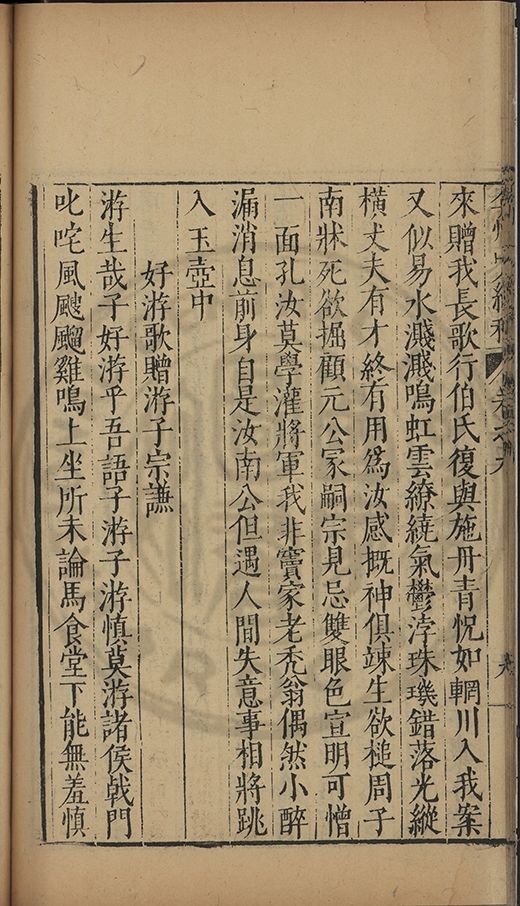 來贈我長歌行伯氏復與施丹青怳如輞川入我案
又似易水濺濺鳴虹雲繚繞氣鬱浡珠璣錯落光縱
橫丈夫有才終有用爲汝感慨神俱竦生欲槌周子
南牀死欲掘顧元公冢嗣宗見忌雙眼色宣明可憎
一面孔汝莫學灌將軍我非竇家老秃翁偶然小醉
漏消息前身自是汝南公但遇人間失意事相將跳
入玉壺中
好游歌贈游子宗謙
游生哉子好游乎吾語子游子游慎莫游諸侯戟門
叱咤風颼飀雞鳴上坐所未論馬食堂下能無羞慎